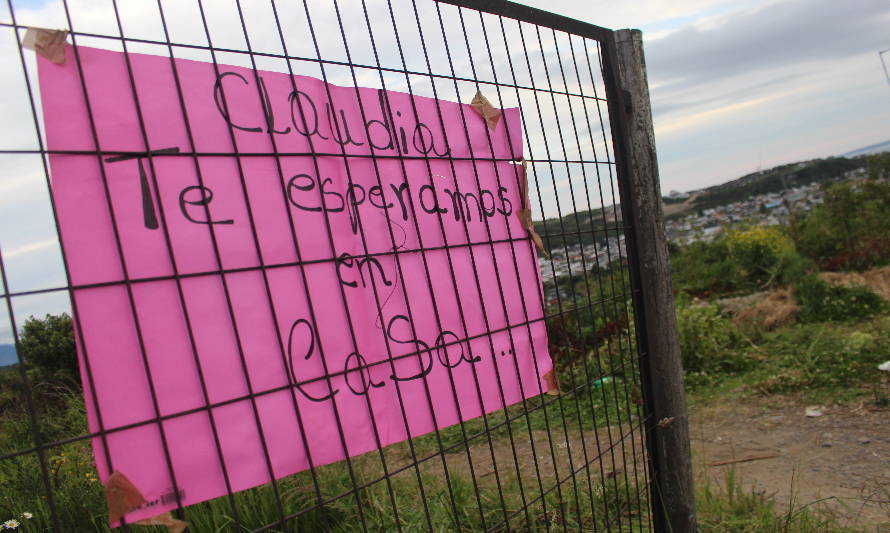 Claudia
Te esperamos
en
CaSa..